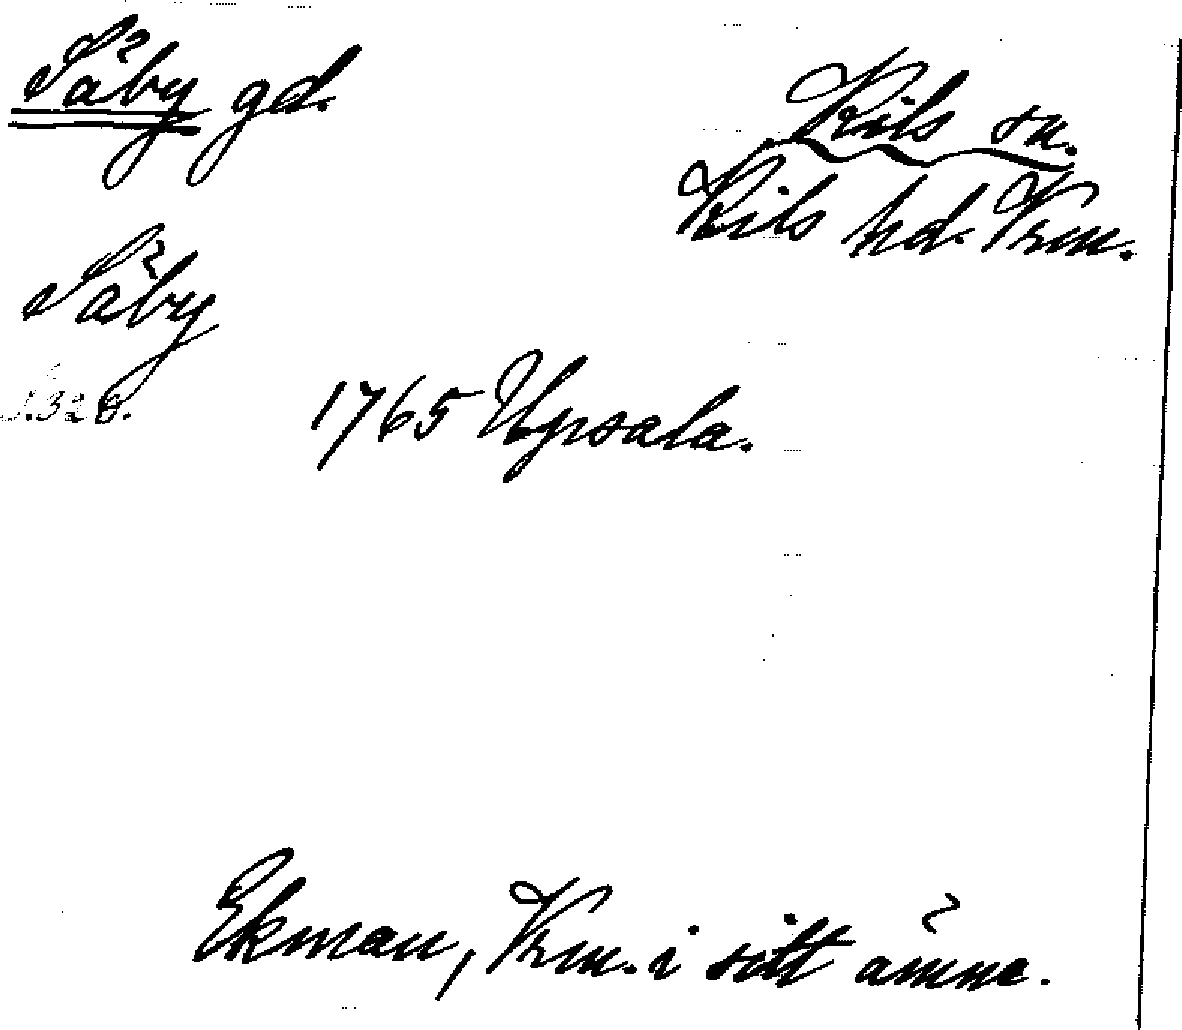 Säby gd.
Kils sn.
Kils hd. Vrm.
Säby
S. 328.
1765 Upsala.
Ekman, Vrm. i sitt ämne.